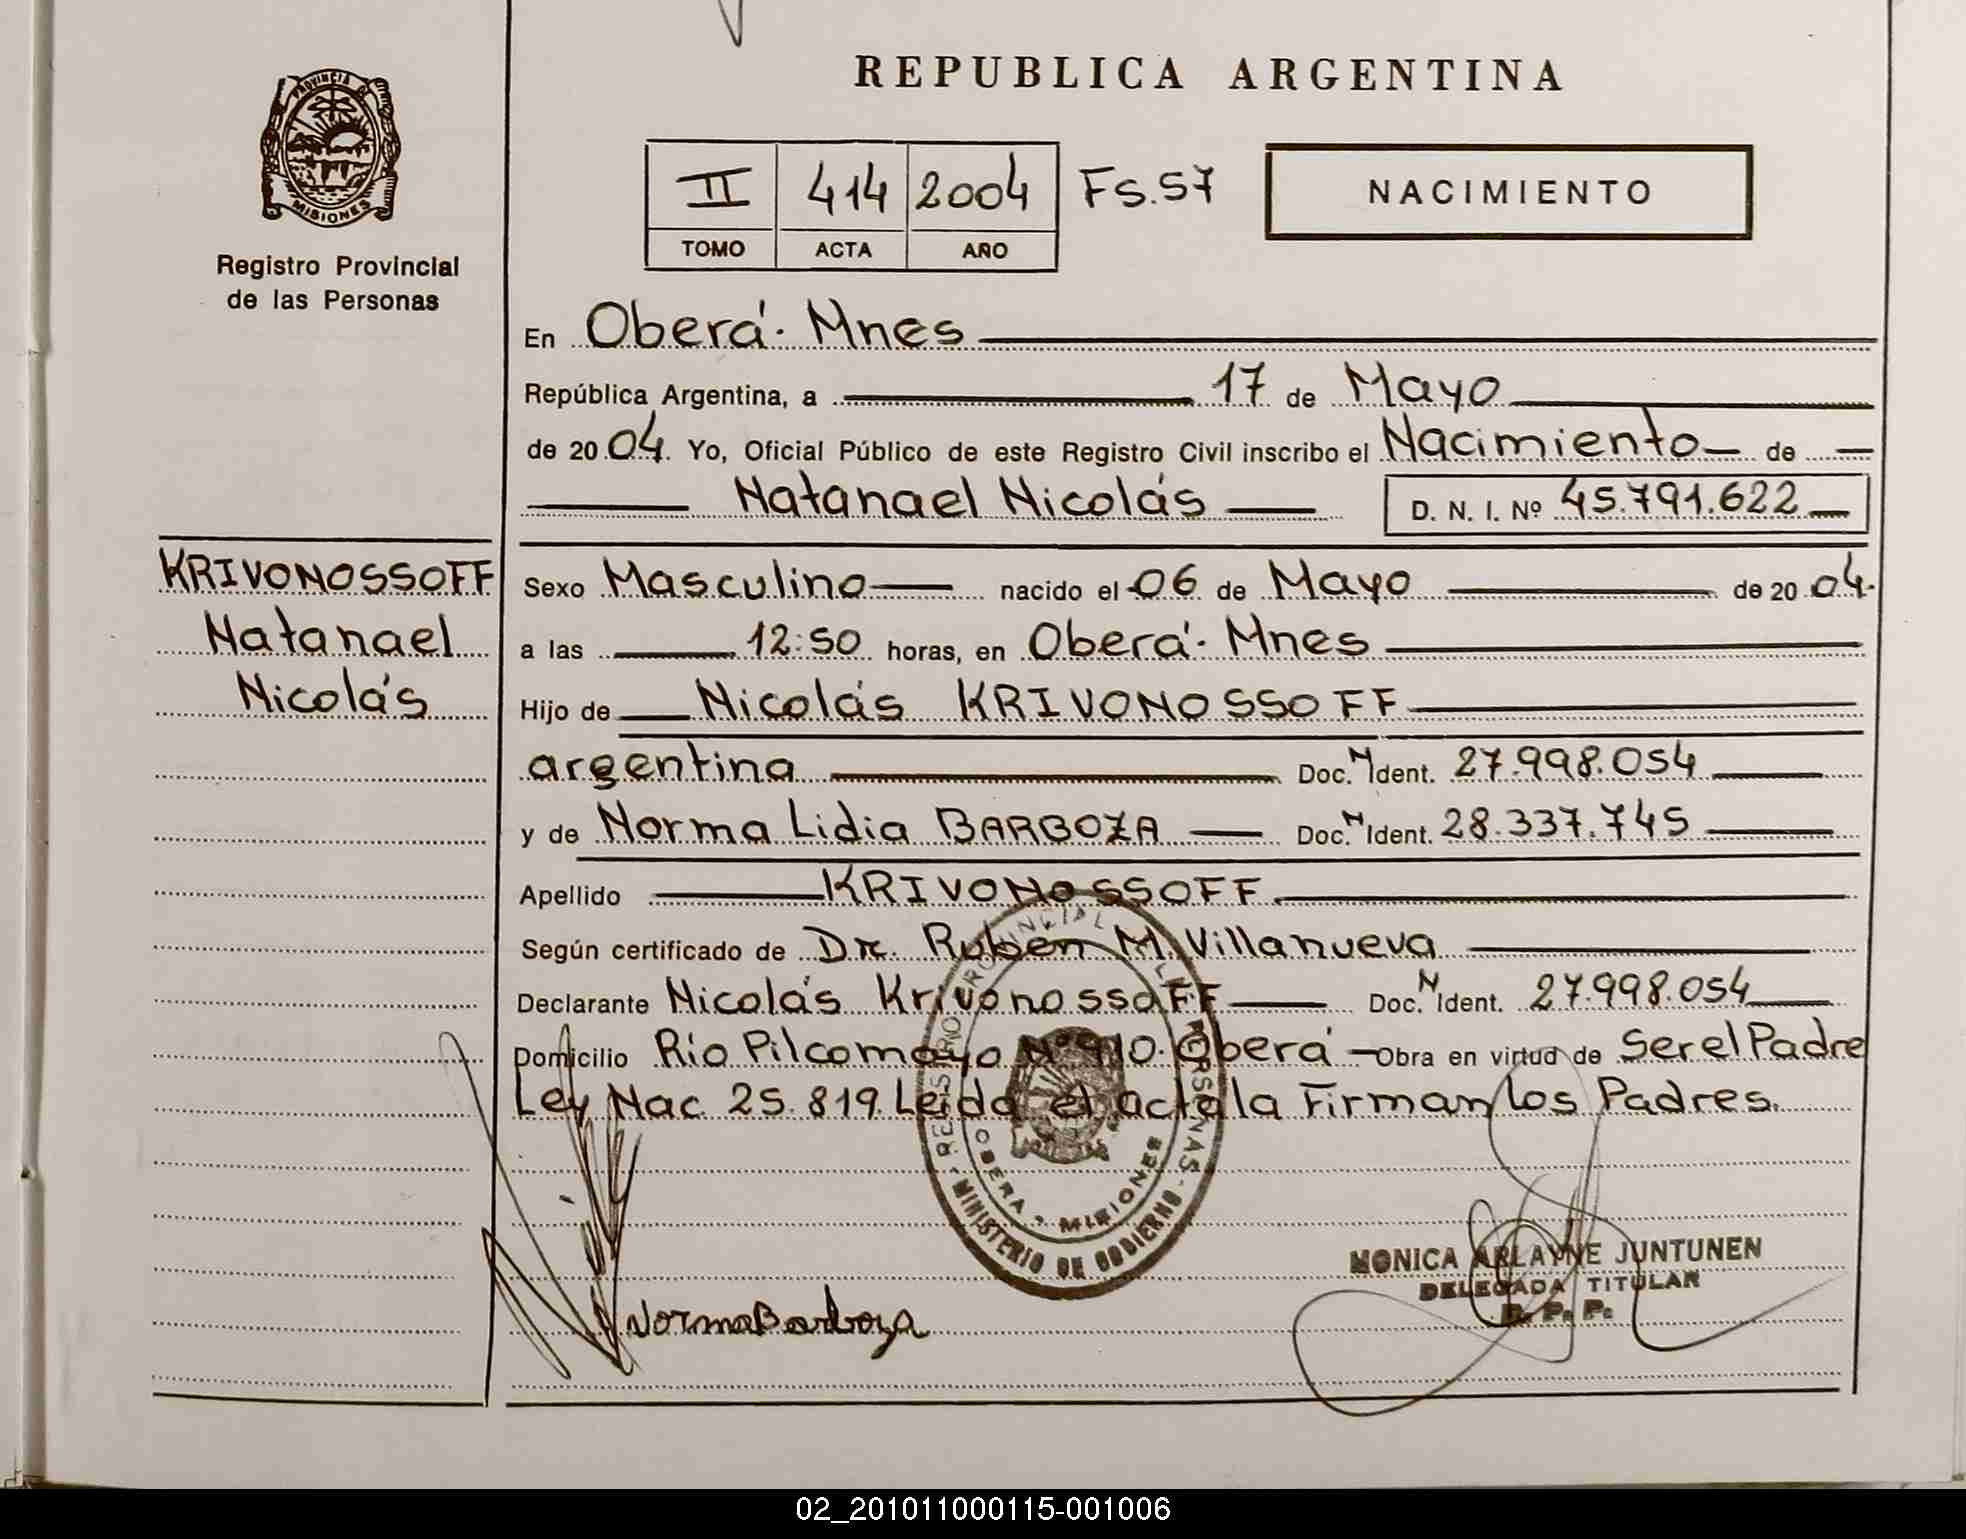 REPUBLICA ARGENTINA
PROVINCIA DE
MISIONES
Registro Provincial
de las Personas
II 414 2004 Fs.57
TOMO ACTA AÑO
NACIMIENTO
En Oberá. Mnes
República Argentina, a 17 de Mayo
de 2004. Yo, Oficial Público de este Registro Civil inscribo el Nacimiento de
Natanael Nicolás D. N. I. Nº 45.791.622
KRIVONOSSOFF
Natanael
Nicolás
Sexo Masculino nacido el 06 de Mayo de 2004.
a las 12:50 horas, en Oberá. Mnes
Hijo de Nicolás KRIVONOSSOFF
argentina Doc. N Ident. 27.998.054
y de Norma Lidia BARBOZA Doc. N Ident. 28.337.745
Apellido KRIVONOSSOFF
Según certificado de Dr. Ruben M. Villanueva
Declarante Nicolás Krivonossoff Doc. N Ident. 27.998.054
Domicilio Río Pilcomayo Nº 910. Oberá Obra en virtud de Ser el Padre
Ley Nac. 25.819. Leida el acta la Firman los Padres.
REGISTRO PROVINCIAL DE LAS PERSONAS
MINISTERIO DE GOBIERNO
OBERA - MISIONES
Norma Barboza
MONICA ARLAYNE JUNTUNEN
DELEGADA TITULAR
R. P. P.
02_201011000115-001006